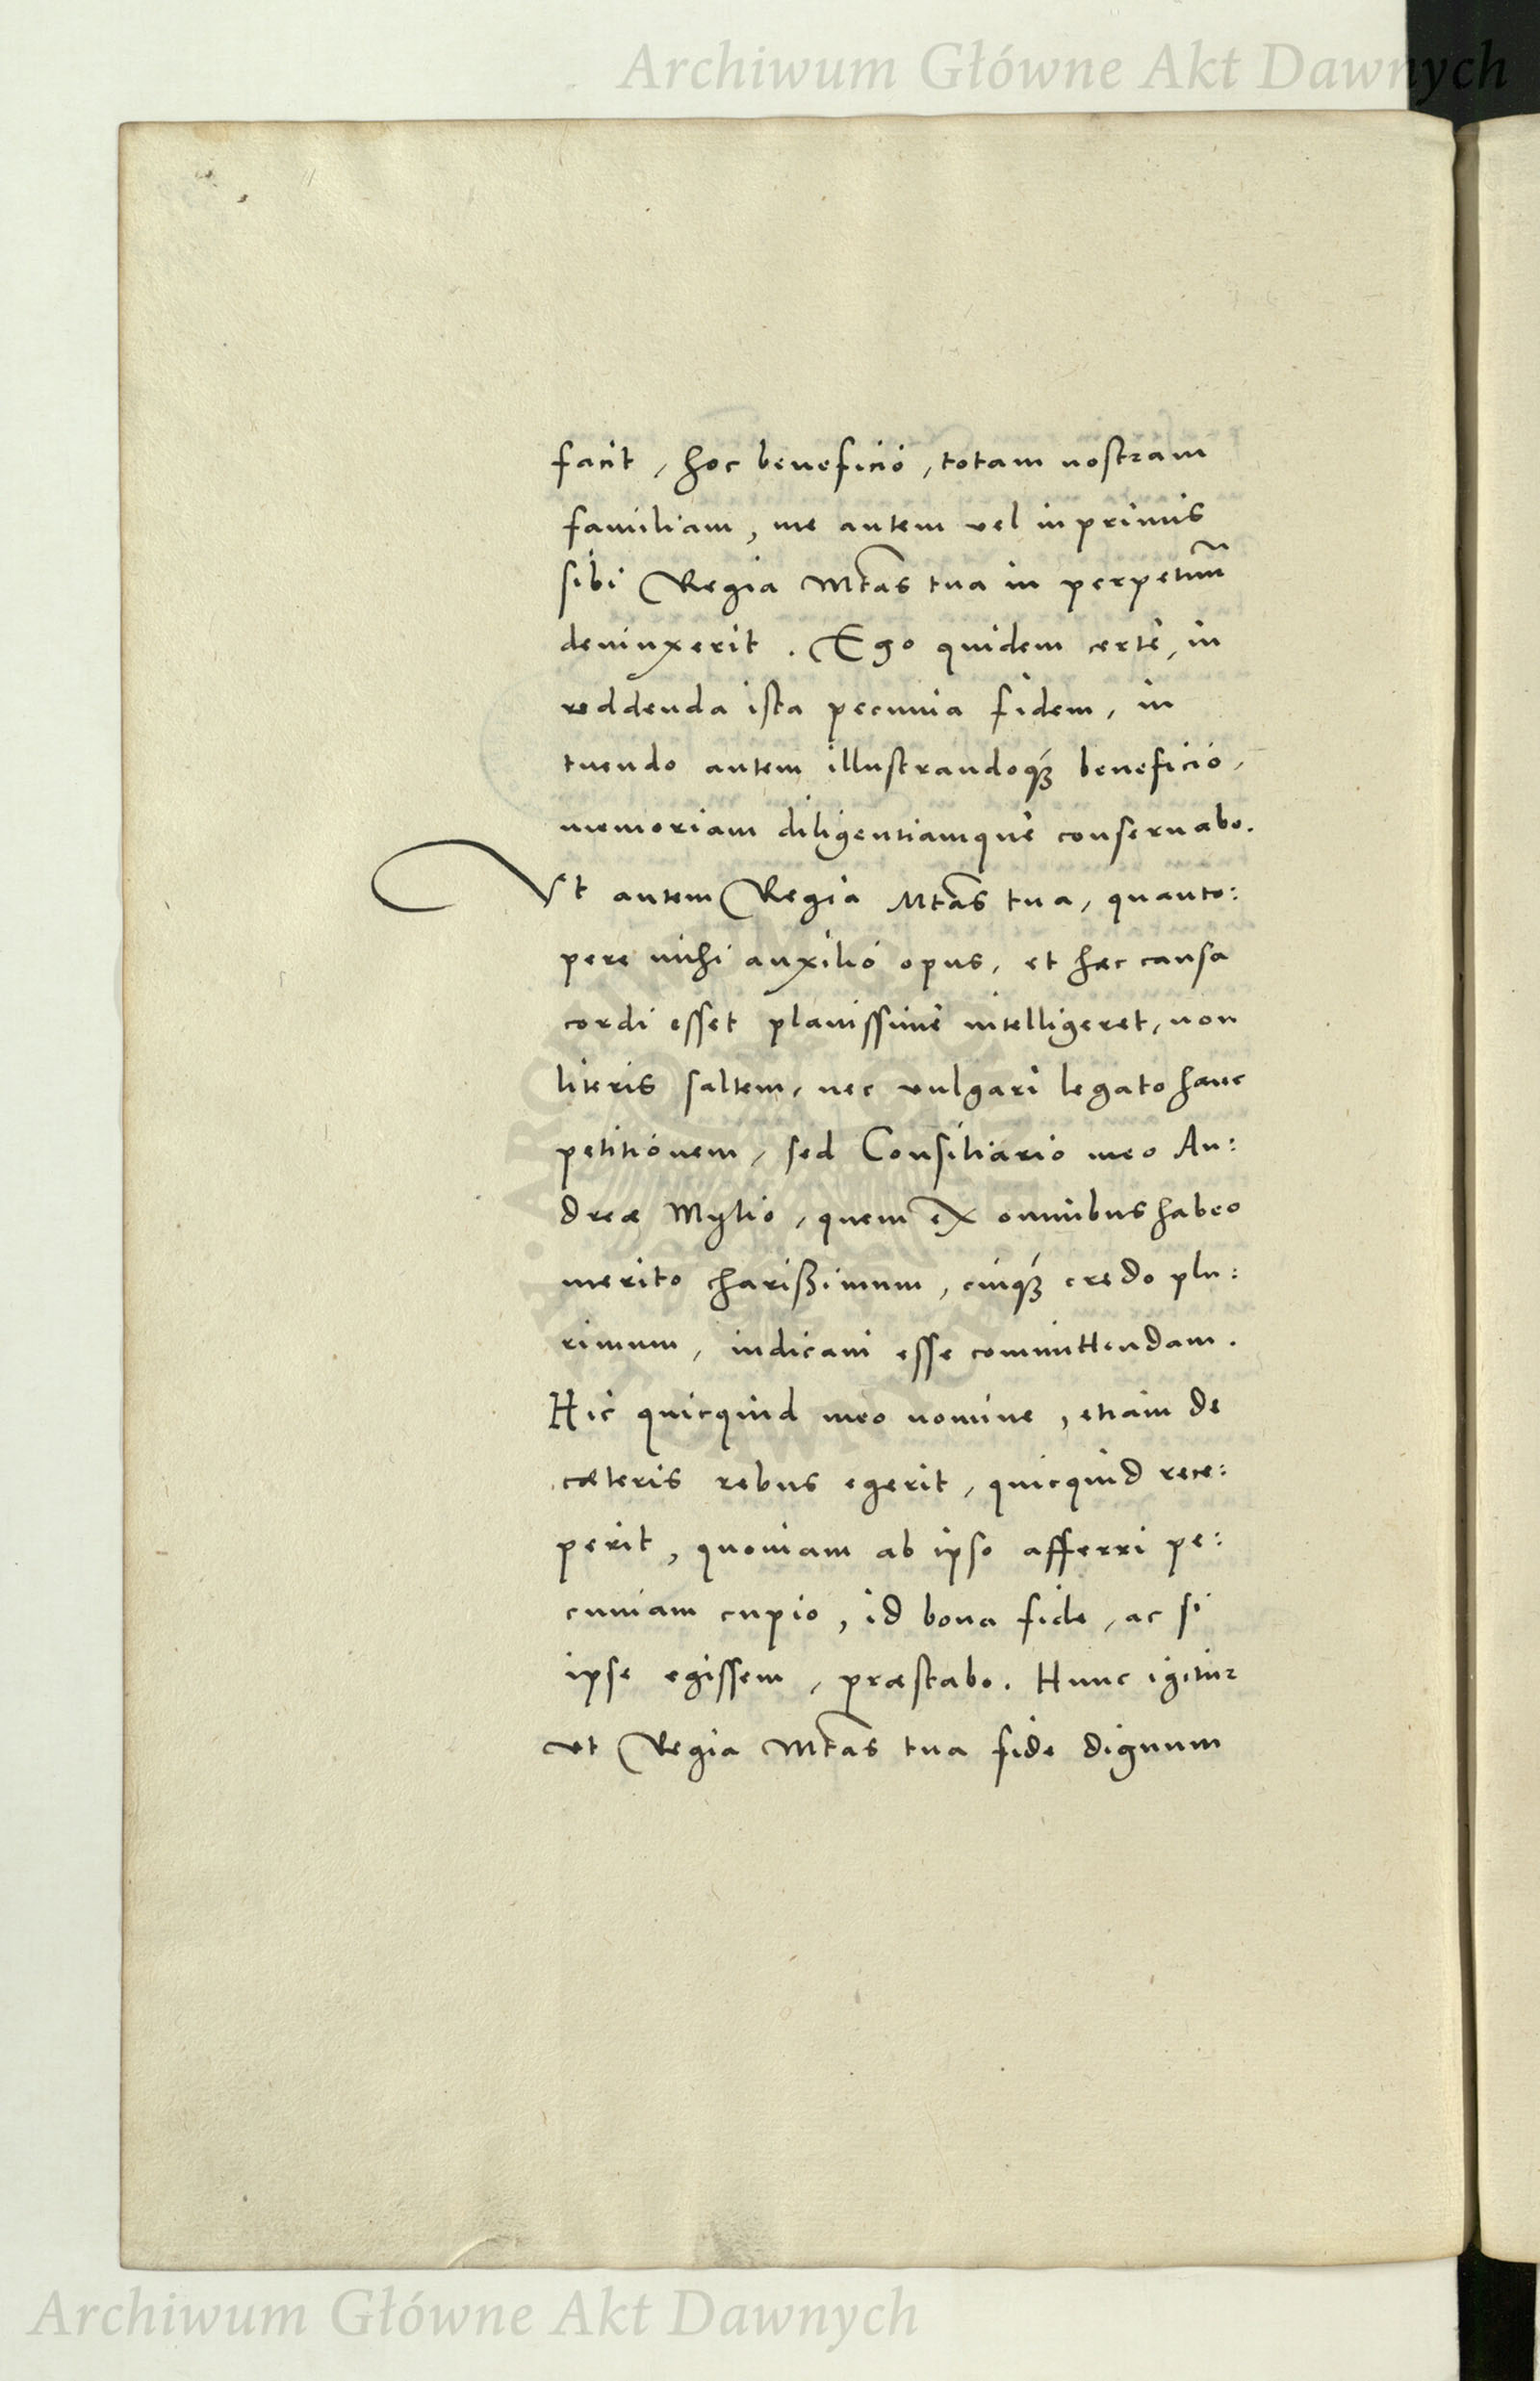 Archiwum Główne Akt Dawnych
facit, hoc beneficio, totam nostram
familiam, me autem vel inprimis
sibi Regia Mtas tua in perpetuũ
deuinxerit. Ego quidem certè, in
reddenda ista pecunia fidem, in
tuendo autem illustrandoq́ꝫ beneficio,
memoriam diligentiamque conseruabo.
Vt autem Regia Mtas tua, quanto:
pere mihi auxilio opus, et haec causa
cordi esset planissimè intelligeret, non
literis saltem, nec vulgari legato hanc
petitionem, sed Consiliario meo An:
dreæ Mylio, quem ex omnibus habeo
merito charißimum, cuiq́ꝫ credo plu:
rimum, iudicaui esse committendam.
Hic quicquid meo nomine, etiam de
cæteris rebus egerit, quicquid rece:
perit, quoniam ab ipso afferri pe:
cuniam cupio, id bona fide, ac si
ipse egissem, præstabo. Hunc igitur
vt Regia Mtas tua fide dignum
Archiwum Główne Akt Dawnych